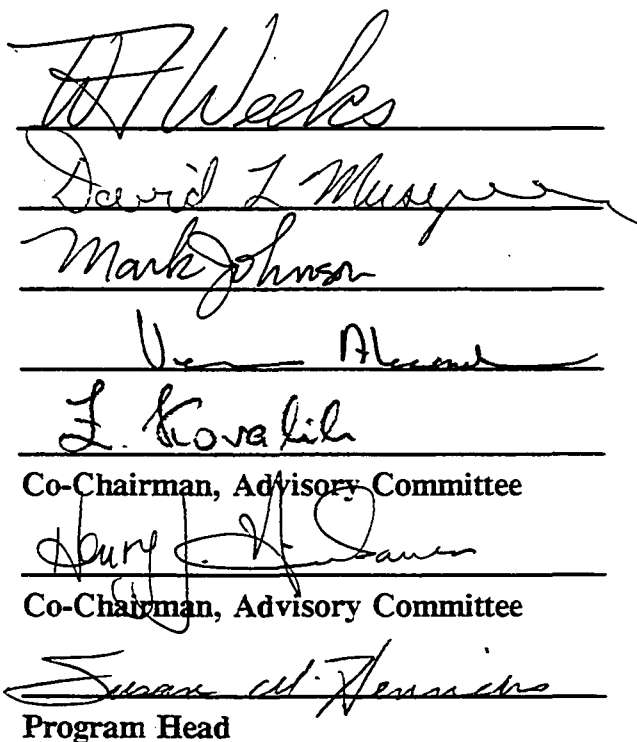 WF Weeks
David L Musgrave
Mark Johnson
Vera Alexander
Z. Kowalik
Co-Chairman, Advisory Committee
Henry J. Niebauer
Co-Chairman, Advisory Committee
Susan M. Henrichs
Program Head